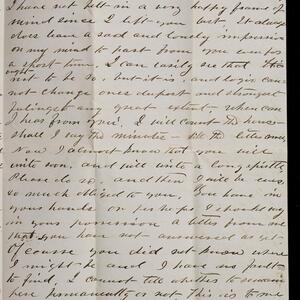 I have not felt in a very happy frame of
mind since I left you last. It always
does leave a sad and lonely impression
on my mind to part from you even for
a short time. I can easily see that this
ought
not to be so, but it is, and logic can
not change ones deepest and strongest
feelings to any great extent. When can
I hear from you. I will count the hours
shall I say the minutes till the letter comes
Now I almost know that you will
write soon, and will write a long epistle
Please do so and then I will be ever
so much obliged to you. You have in
your hands or perhaps I should say
in your possession a letter from me
that you have not answered as yet
Of course you did not know where
I might be and I have no fault
to find, I cannot tell whether to remain
here permanently or not. This at to me